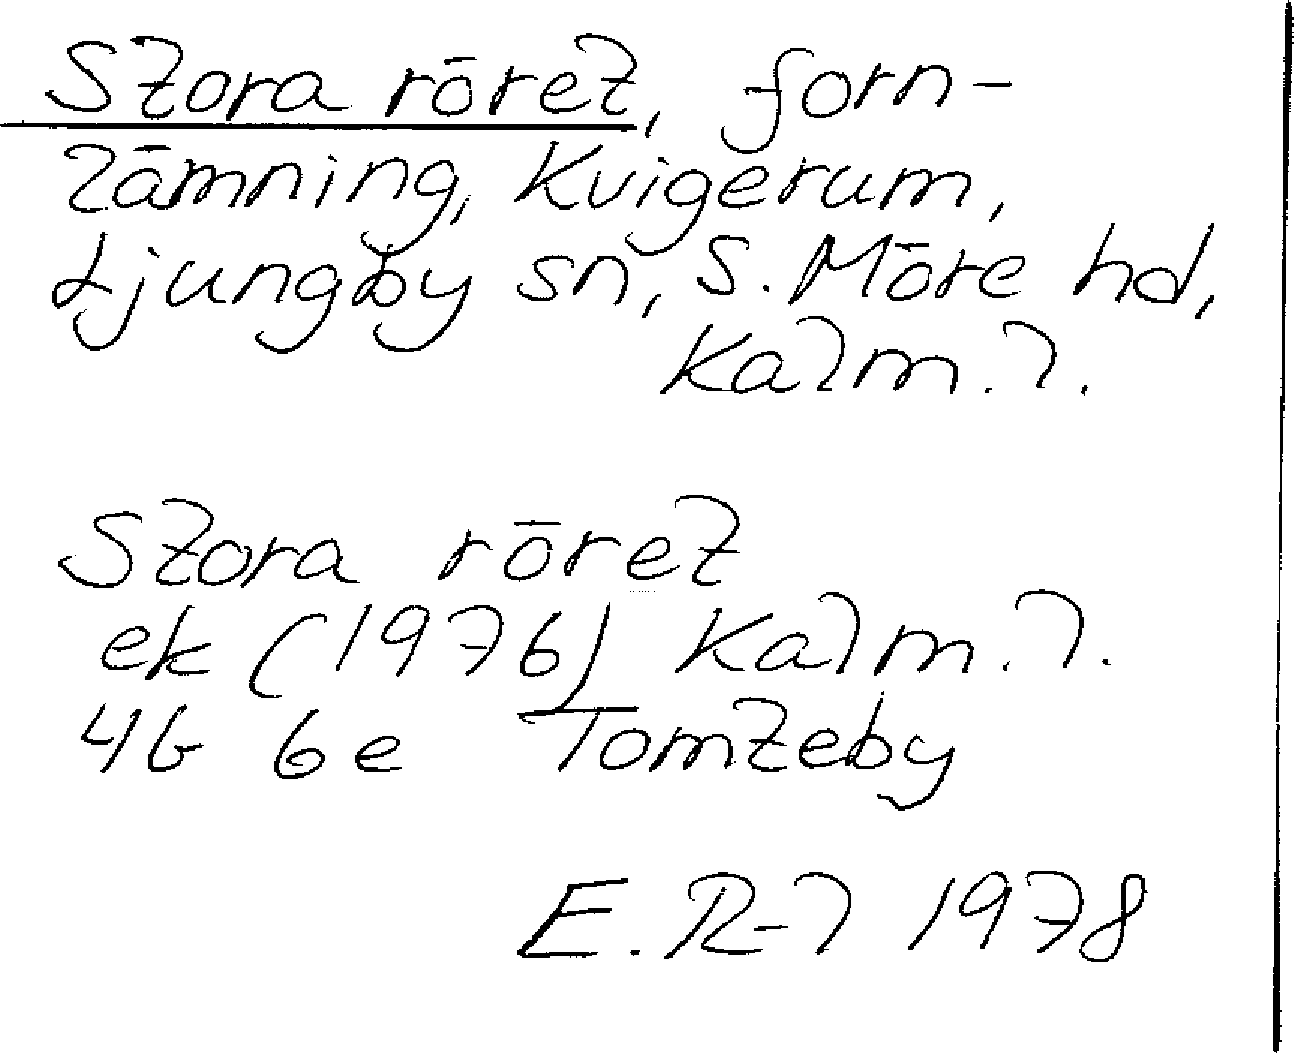 Stora röret, forn-
lämning, Kvigerum,
Ljungby sn, S. Möre hd,
Kalm. l.
Stora röret
ek (1976) Kalm. l.
4G 6e Tomteby
E. R-l 1978